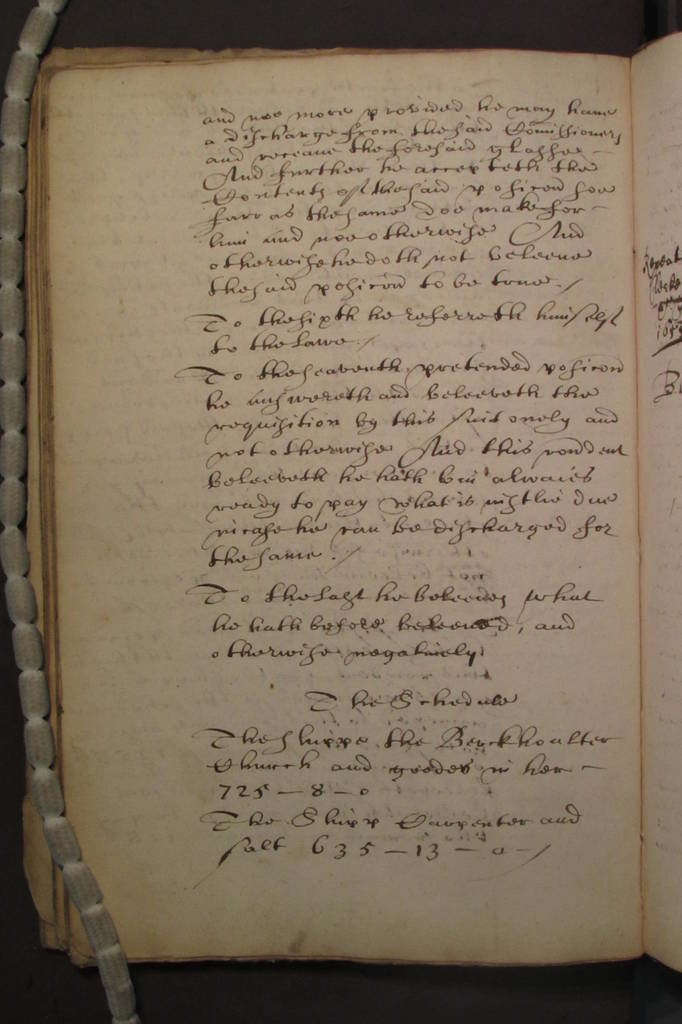 and noe more provided he may haue
a discharge from the said Comissioners
and receaue the foresaid glasses
And further he accepteth the
Contents of the said posicon soe
farr as the same doe make for
him and noe otherwise And
otherwise he doth not beleeue
the said posicon to be true./
To the sixth he referreth himselfe
to the Lawe./
To the seaventh pretended posicon
he answereth and beleeveth the
requisition by this suit onely and
not otherwise And this rondent
beleeveth he hath bin alwaies
ready to pay what is iustlie due
in case he can be discharged for
the same./
To the Last he beleeues what
he hath before beleeued, and
otherwise negatiuely
The Schedule
The shippe the Berckhoulter
Church and goodes in her
725 - 8 - 0
The Shipp Carpenter and
salt 635 - 13 - 0 -/